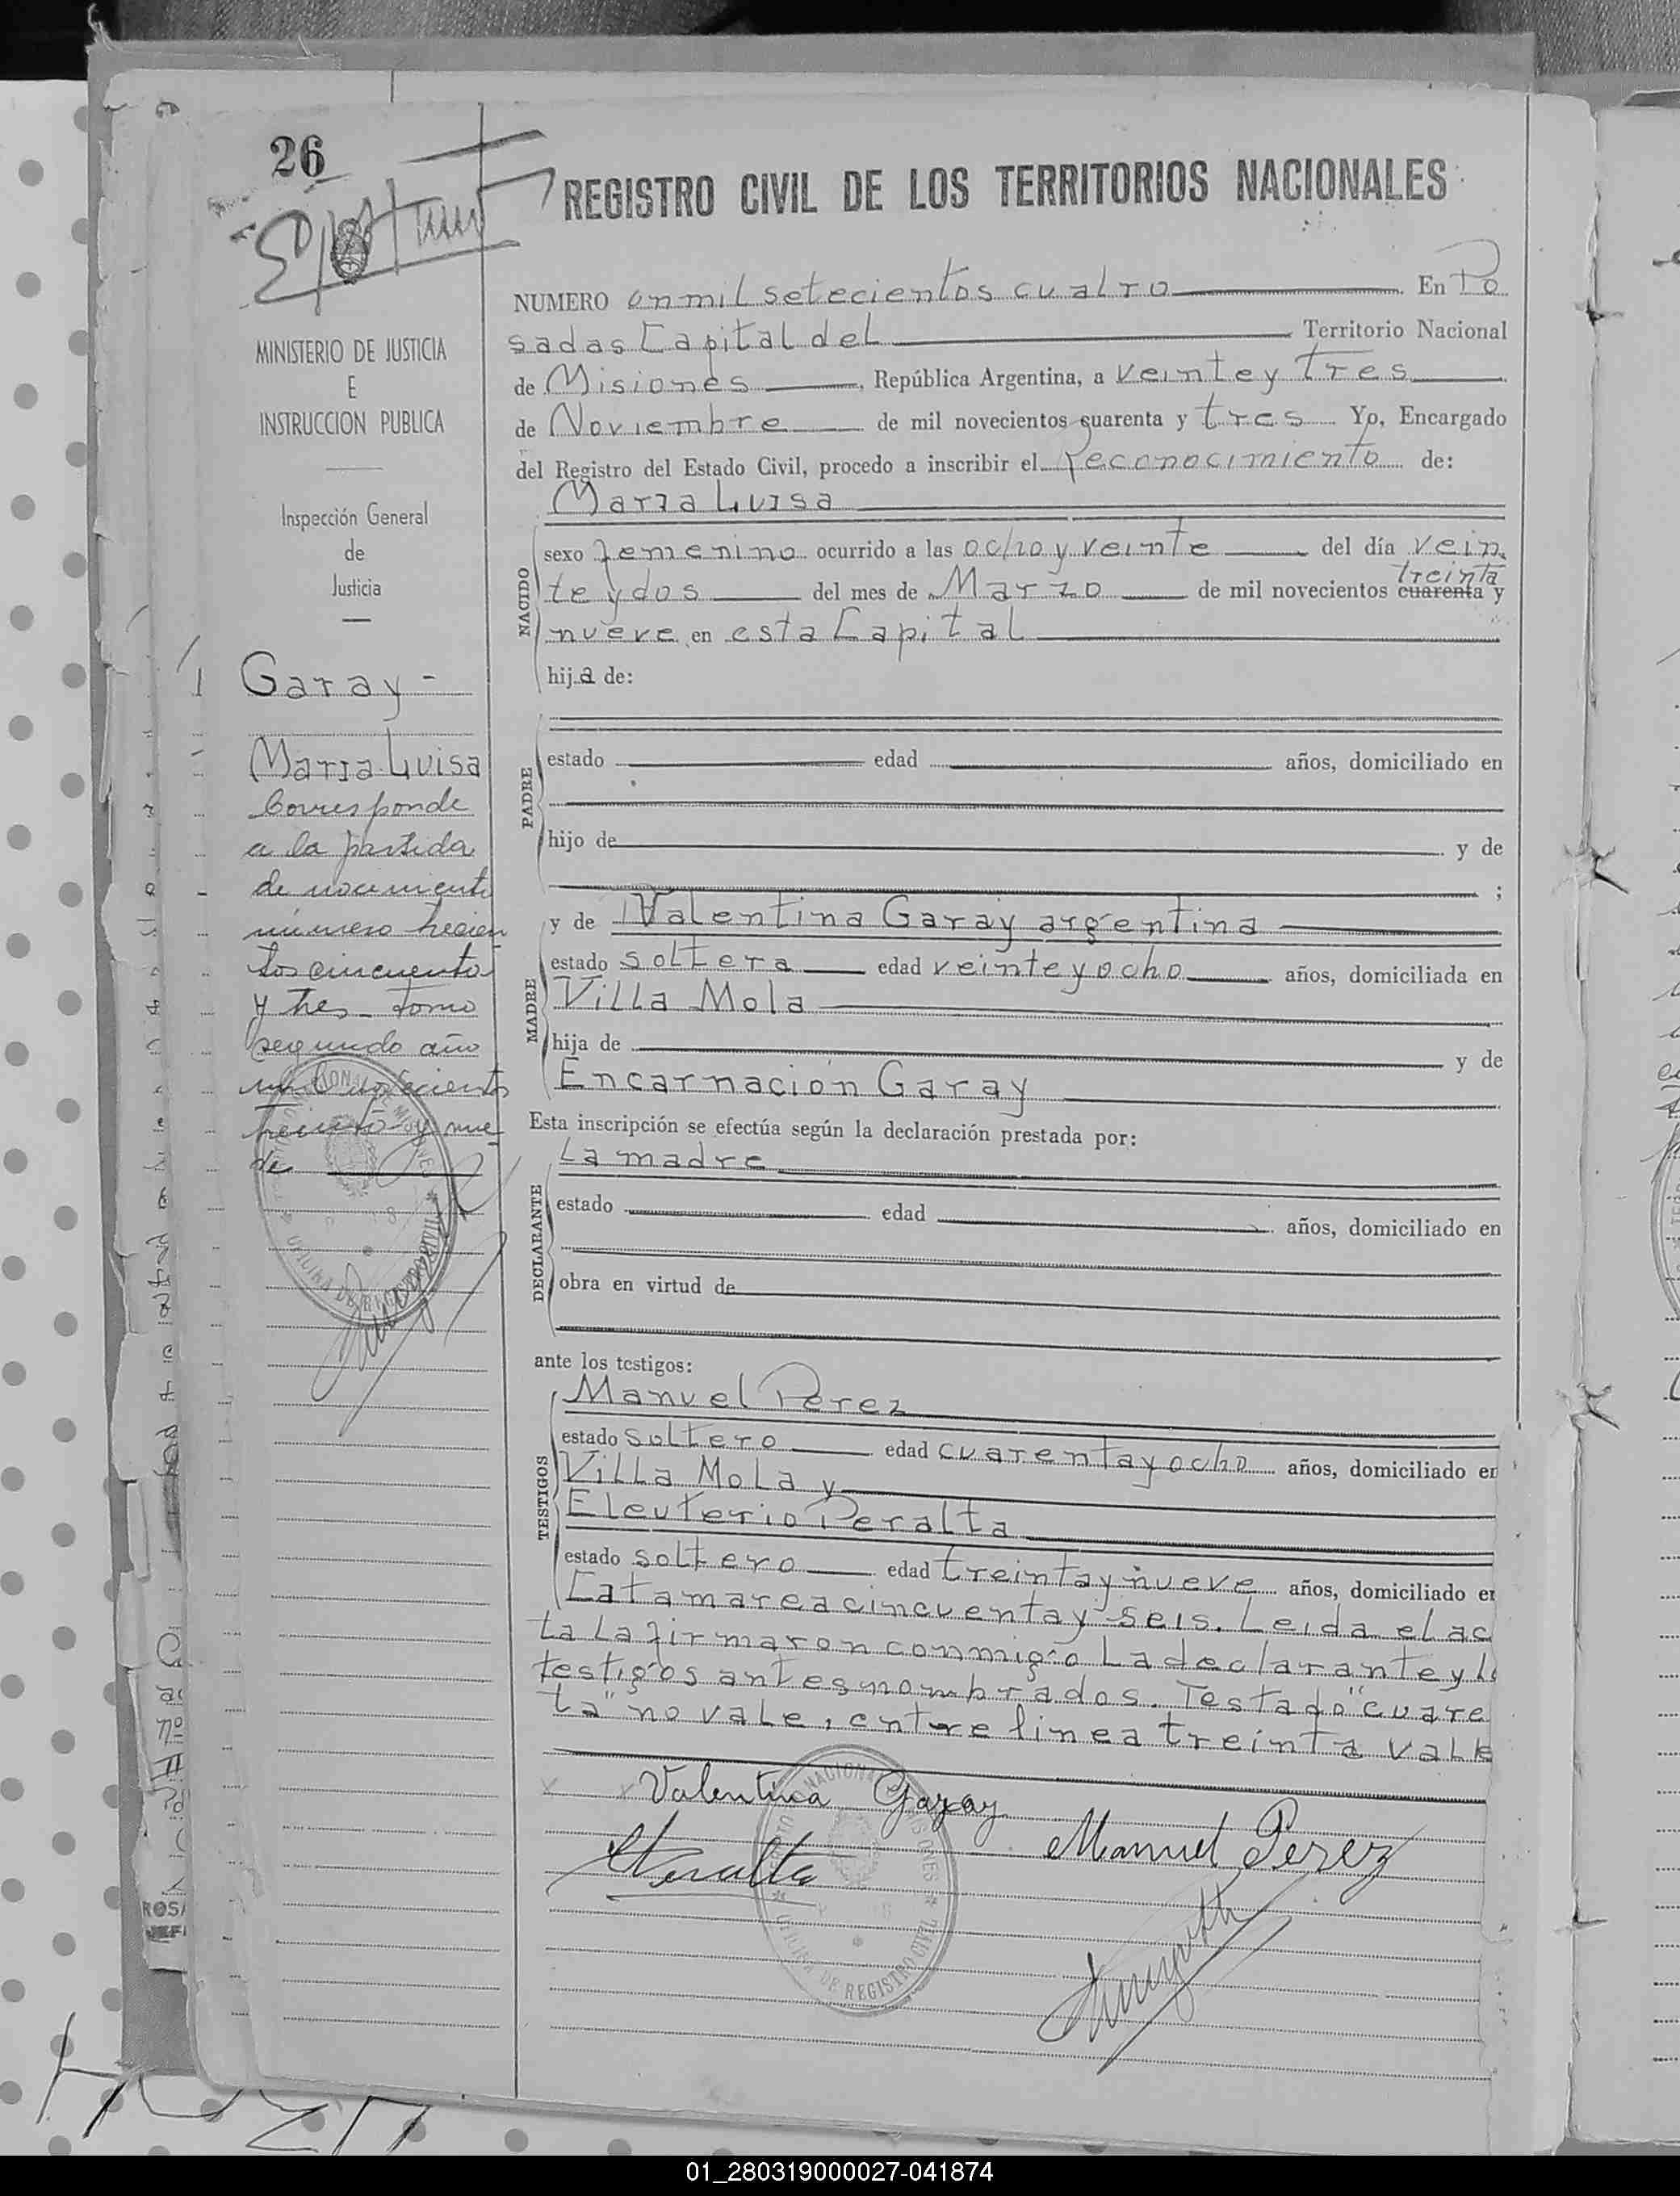 26
REGISTRO CIVIL DE LOS TERRITORIOS NACIONALES
MINISTERIO DE JUSTICIA
E
INSTRUCCION PUBLICA
Inspección General
de
Justicia
Garay-
Maria Luisa
Corresponde
a la partida
de nacimiento
número trecien
tos cincuenta
y tres - tomo
segundo año
mil novecientos
treinta y nue
ve
NUMERO un mil setecientos cuatro En Po
sadas Capital del Territorio Nacional
de Misiones, República Argentina, a veinte y tres
de Noviembre de mil novecientos cuarenta y tres Yo, Encargado
del Registro del Estado Civil, procedo a inscribir el Reconocimiento de:
Maria Luisa
NACIDO
sexo femenino ocurrido a las ocho y veinte del día vein
treinta
te y dos del mes de Marzo de mil novecientos cuarenta y
nueve en esta Capital
hija de:
PADRE
estado edad años, domiciliado en
hijo de y de
;
MADRE
y de Valentina Garay argentina
estado soltera edad veinte y ocho años, domiciliada en
Villa Mola
hija de y de
Encarnación Garay
Esta inscripción se efectúa según la declaración prestada por:
La madre
DECLARANTE
estado edad años, domiciliado en
obra en virtud de
ante los testigos:
TESTIGOS
Manuel Perez
estado soltero edad cuarenta y ocho años, domiciliado en
Villa Mola y
Eleuterio Peralta
estado soltero edad treinta y nueve años, domiciliado en
Catamarca cincuenta y seis. Leida el ac
ta la firmaron conmigo la declarante y lo
testigos antes nombrados. Testado "cuare
ta" no vale, entre linea treinta vale
Valentina Garay
Peralta
Manuel Perez
OFICINA DE REGISTRO CIVIL
01_280319000027-041874